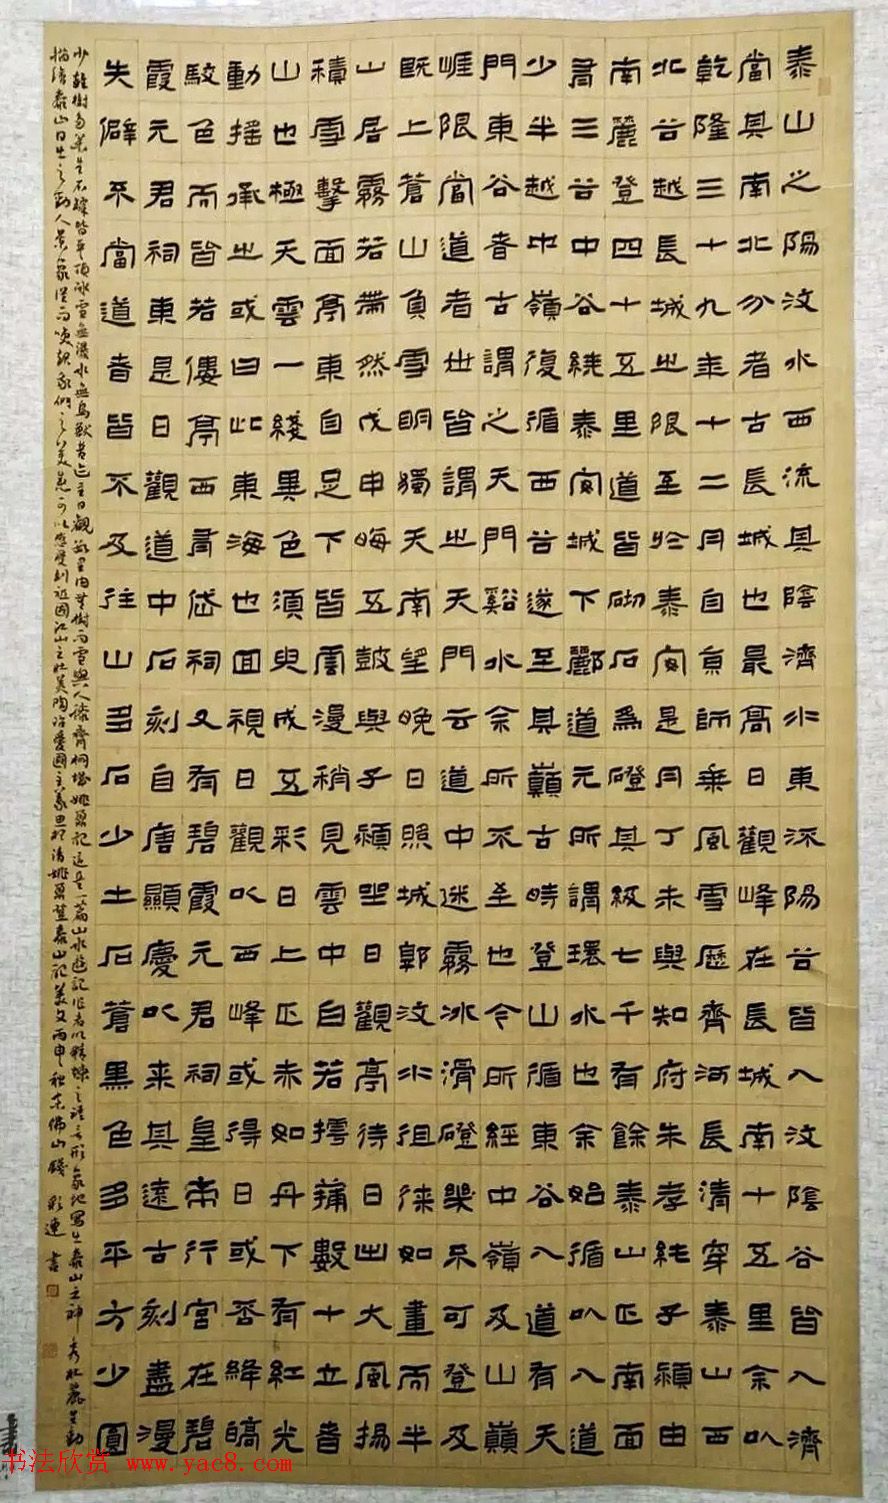 泰山之陽汶水西流其陰濟水東流陽谷皆入汶陰谷皆入濟
當其南北分者古長城也最高日觀峰在長城南十五里余以
乾隆三十九年十二月自京師乘風雪歷齊河長清穿泰山西
北谷越長城之限至於泰安是月丁未與知府朱孝純子潁由
南麓登四十五里道皆砌石為磴其級七千有餘泰山正南面
有三谷中谷繞泰安城下酈道元所謂環水也余始循以入道
少半越中嶺復循西谷遂至其巔古時登山循東谷入道有天
門東谷者古謂之天門谿水余所不至也今所經中嶺及山巔
崖限當道者世皆謂之天門云道中迷霧冰滑磴幾不可登及
既上蒼山負雪明燭天南望晚日照城郭汶水徂徠如畫而半
山居霧若帶然戊申晦五鼓與子潁坐日觀亭待日出大風揚
積雪擊面亭東自足下皆雲漫稍見雲中白若摴蒱數十立者
山也極天雲一綫異色須臾成五彩日上正赤如丹下有紅光
動搖承之或曰此東海也回視日觀以西峰或得日或否絳皜
駁色而皆若僂亭西有岱祠又有碧霞元君祠皇帝行宮在碧
霞元君祠東是日觀道中石刻自唐顯慶以來其遠古刻盡漫
失僻不當道者皆不及往山多石少土石蒼黑色多平方少圜
少雜樹多松生石罅皆平頂冰雪無瀑水無鳥獸音迹至日觀數里內無樹而雪與人膝齊桐城姚鼐記這是一篇山水遊記作者以精煉之語言形象地寫出泰山之神秀壯麗生動
描繪泰山日出之動人景象從而喚起我們之美感可以感受到祖國江山之壯美陶冶愛國主義思想清姚鼐登泰山記美文丙申秋於佛山錢彩連書
书法欣赏 www.yac8.com